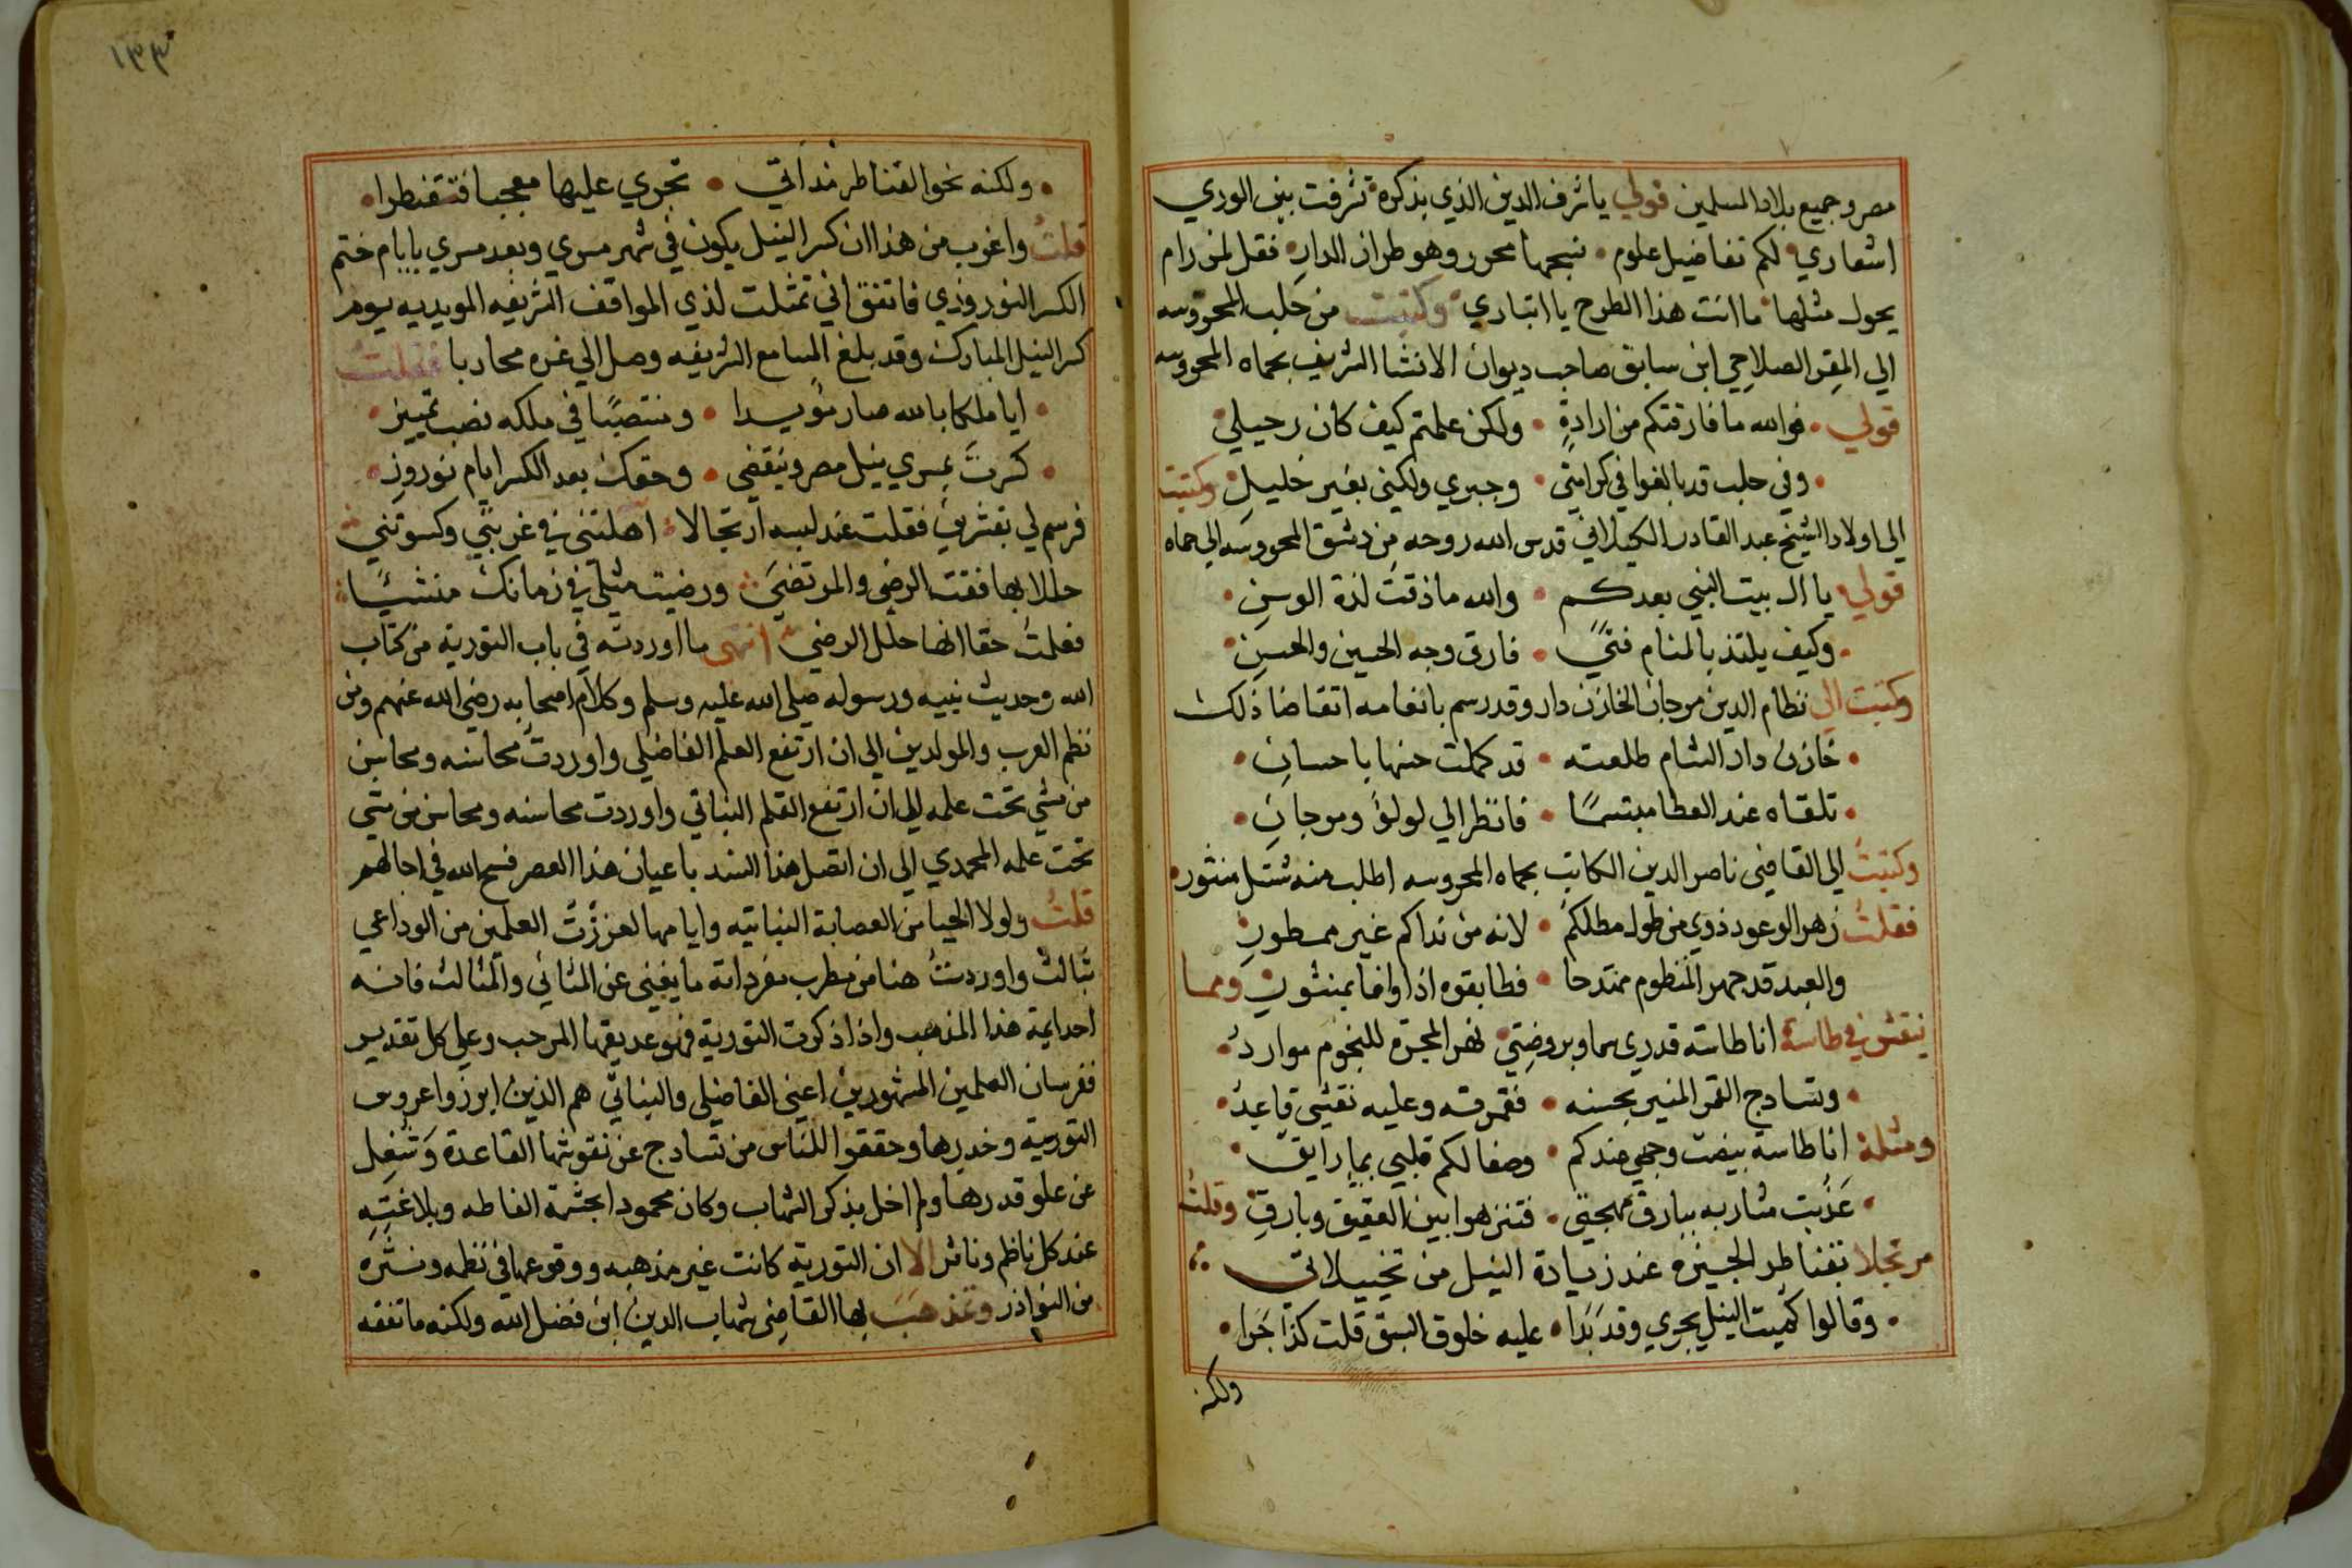 مصر وجميع بلاد المسلمين قولي يا شرف الدين الذي بذكره تشرفت بين الوري
اشعاري لكم تفاضيل علوم نسجها محرر وهو طراز الدار فقل لمن رام
يحول مثلها ما انت هذا الطرح يا انباري وكتبت من حلب المحروسه
الي المقر الصلاحي ابن سابق صاحب ديوان الانشا الشريف بحماه المحروسه
قولي فوالله ما فارقتكم من ارادة ولكن علمتم كيف كان رحيلي
وفي حلب قد بالغوا في كرامتي وجبري ولكني بغير خليل وكتبت
الي اولاد الشيخ عبد القادر الكيلاني قدس الله روحه من دمشق المحروسه الي حماه
قولي يا ال بيت النبي بعدكم والله ما ذقت لذة الوسن
وكيف يلتذ بالمنام فتيً فارق وجه الحسين والحسن
وكتبت الي نظام الدين مرجان الخازن دار وقد رسم بانعامه اتقاضا ذلك
خازن دار الشام طلعته قد كملت حسنها باحسان
تلقاه عند العطا مبتسمًا فانظر الي لولوٍ ومرجان
وكتبت الي القاضي ناصر الدين الكاتب بحماه المحروسه اطلب منه شتل منثور
فقلت زهر الوعود ذوي من طول مطلكم لانه من نداكم غير ممطور
والعبد قد جهر المنظوم ممتدحا فطابقوه اذا وافا بمنثور ومما
ينقش في طاسة انا طاسة قدري سما وبروضتي نهر المجرة للنجوم موارد
وتسادج القمر المنير بحسنه فقمرته وعليه نقشي قاعد
ومثله انا طاسة بيضت وجهي عندكم وصفا لكم قلبي بماء رايق
عذبت مشاربه ببارق مهجتي فتنزهوا بين العقيق وبارق وقلت
مرتجلا بقناطر الجيزه عند زيادة النيل من تخييلاتي
وقالوا كميت النيل يجري وقد بدا عليه خلوق السبق قلت كذا جرا
ولكنه
١٣٣
ولكنه نحو القناطر مذ اتي تجري عليها معجبا فتقنطرا
قلت واغرب من هذا ان كسر النيل يكون في شهر مسري وبعد مسري بايام ختم
الكسر النوروزي فاتفق اني تمثلت لذي المواقف الشريفه المويديه يوم
كسر النيل المبارك وقد بلغ المسامع الشريفه وصل الي غزه محاربا فقلت
ايا ملكا بالله صار مؤيدا ومنتصبًا في ملكه نصب تمييز
كسرت بمسري نيل مصر وينقضي وحقك بعد الكسر ايام نوروز
فرسم لي بتشريف فقلت عند لبسه ارتجالا اهلتني في غربتي وكسوتني
حللا بها فقت الرضي والمرتضي ورضيت مثلي في زمانك منشيًا
فعلمت حقا انها حلل الرضي انتهي ما اوردته في باب التورية من كتاب
الله وحديث نبيه ورسوله صلي الله عليه وسلم وكلام اصحابه رضي الله عنهم ومن
نظم العرب والمولدين الي ان ارتفع العلم الفاضلي واوردت محاسنه ومحاسن
من مشي تحت علمه الي ان ارتفع القلم النباتي واوردت محاسنه ومحاسن من مشي
تحت علمه المحمدي الي ان اتصل هذا السند باعيان هذا العصر فسح الله في اجالهم
قلت ولولا الحيا من العصابة النباتيه وايامها لعززت العلمين من الوداعي
بثالث واوردت هنا من مطرب مفرداته ما يغني عن المثاني والمثالث فانه
احد ايمة هذا المذهب واذا ذكرت التورية فهو عديقها المرحب وعلي كل تقدير
ففرسان العلمين المشهورين اعني الفاضلي والنباتي هم الذين ابرزوا عروس
التورية وخديرها وحققوا للناس من تسادج عن نقوشها القاعدة وتسفل
عن علو قدرها ولم اخل بذكر الشهاب وكان محمود ابحشمة الفاطه وبلاغته
عند كل ناظم وناثر الا ان التورية كانت غير مذهبه ووقوعها في نظمه ونثره
من النوادر وتمذهب بها القاضي شهاب الدين ابن فضل الله ولكنه ما تفقه